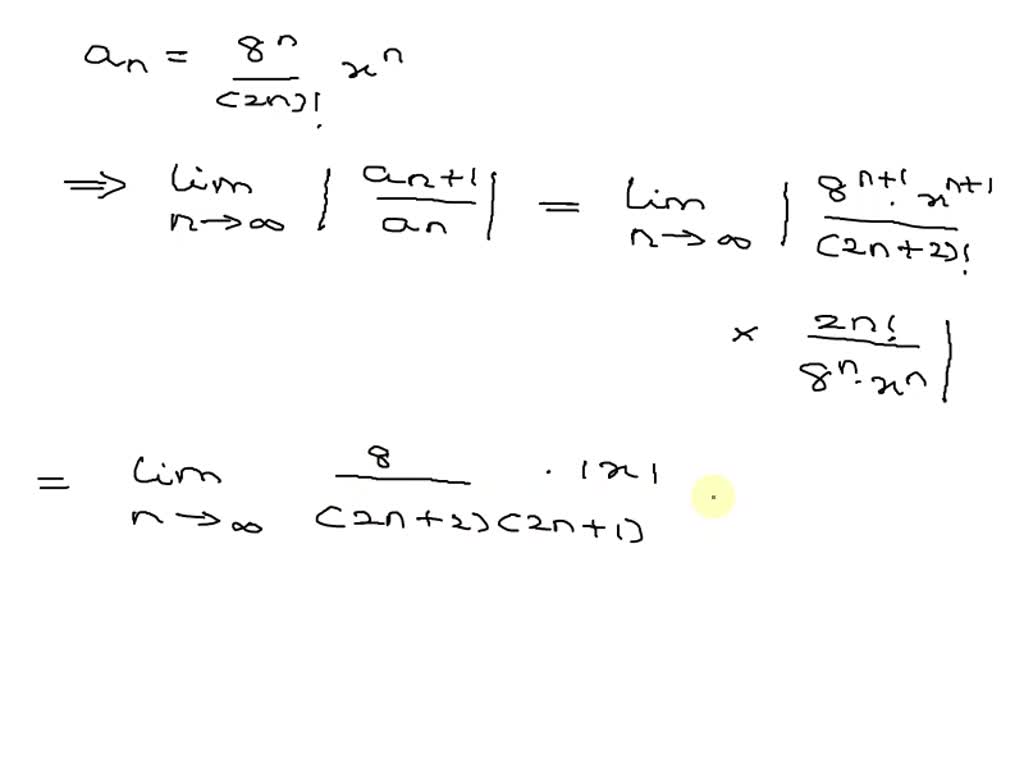 aₙ = 8ⁿ/(2n)! xⁿ
⇒ lim n→∞ | aₙ₊₁/aₙ | = lim n→∞ | 8ⁿ⁺¹·xⁿ⁺¹/(2n+2)!
× 2n!/8ⁿ·xⁿ |
= lim n→∞ 8/(2n+2)(2n+1) · |x|